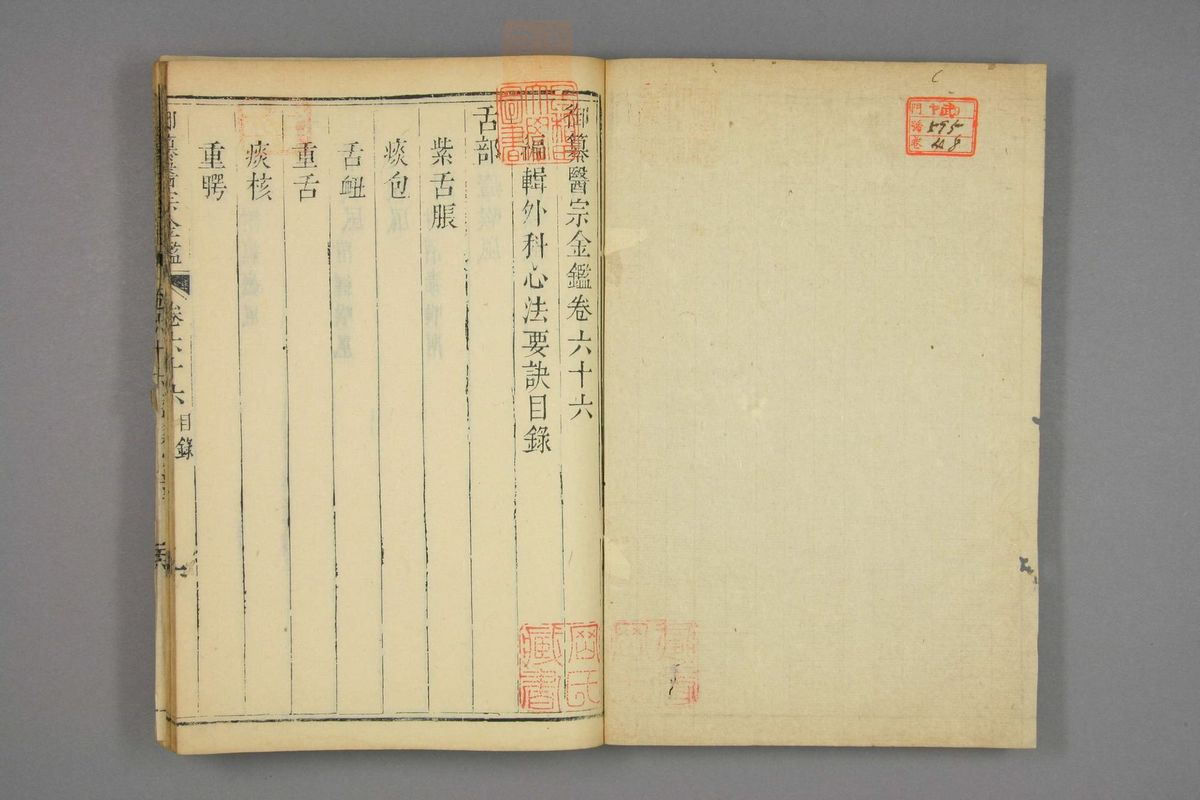 御纂醫宗金鑑卷六十六
編輯外科心法要訣目錄
舌部
紫舌脹
痰包
舌衄
重舌
痰核
重腭
御纂醫宗金鑑 卷六十六 目錄 一
岡氏
藏書
門
号 595
卷 48